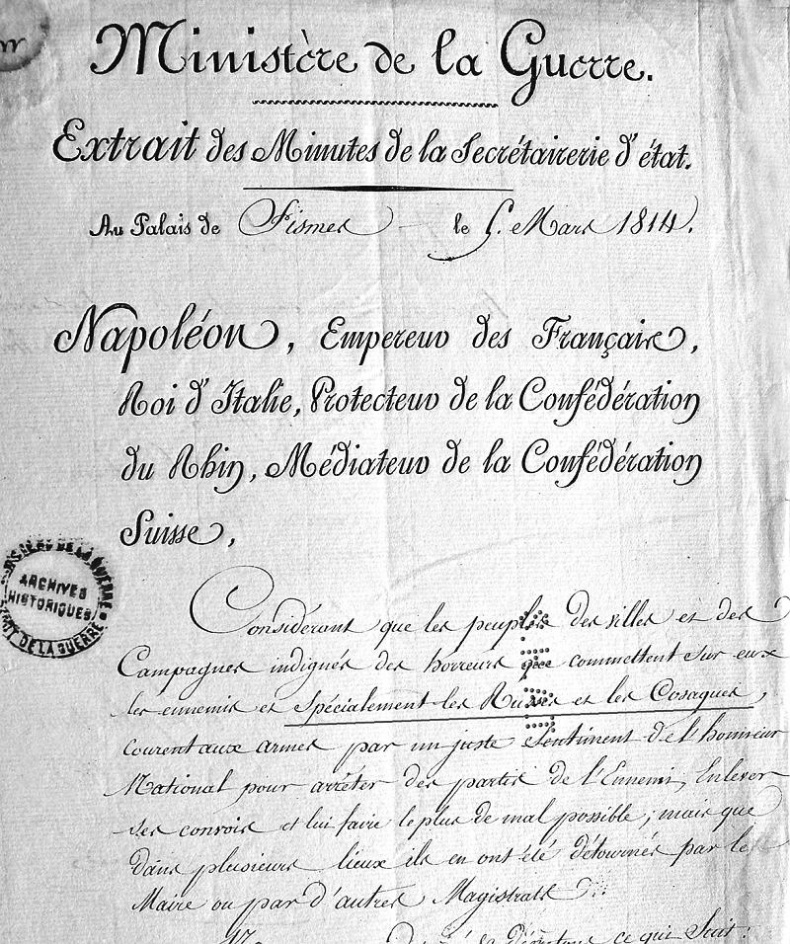 Ministère de la Guerre.
Extrait des Minutes de la Secrétairerie d'état.
Au Palais de Fismes le 5. Mars 1814.
Napoléon, Empereur des Français,
Roi d'Italie, Protecteur de la Confédération
du Rhin, Médiateur de la Confédération
Suisse,
ARCHIVES
HISTORIQUES
DE LA GUERRE
Considérant que les peuples des villes et des
Campagnes indignés des horreurs que commettent sur eux
les ennemis et Spécialement les Russes et les Cosaques,
courent aux armes par un juste Sentiment de l'honneur
National pour arrêter des partis de l'Ennemi, Enlever
ses convois et lui faire le plus de mal possible; mais que
dans plusieurs lieux ils en ont été détournés par le
Maire ou par d'autres Magistrats
ce qui Suit: